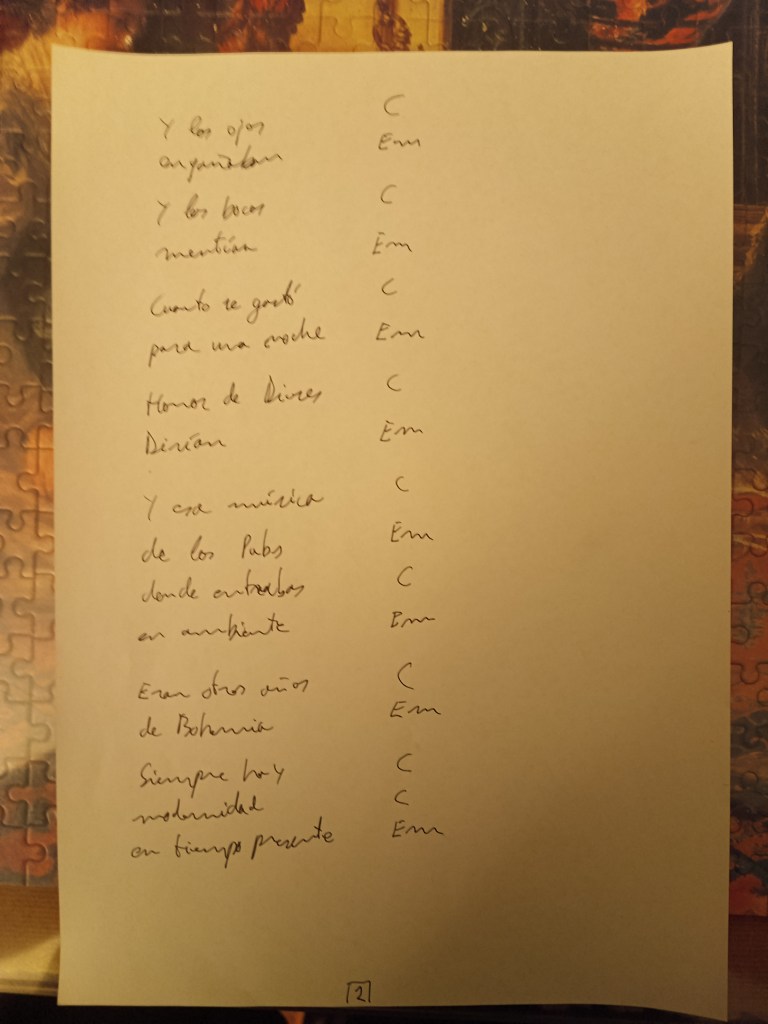 Y los ojos C
engañaban Em
Y las bocas C
mentían Em
Cuanto se gastó C
para una noche Em
Honor de Dioses C
Dirían Em
Y esa música C
de los Pubs Em
donde entrabas C
en ambiente Em
Eran otros años C
de Bohemia Em
Siempre hay C
modernidad C
en tiempo presente Em
2